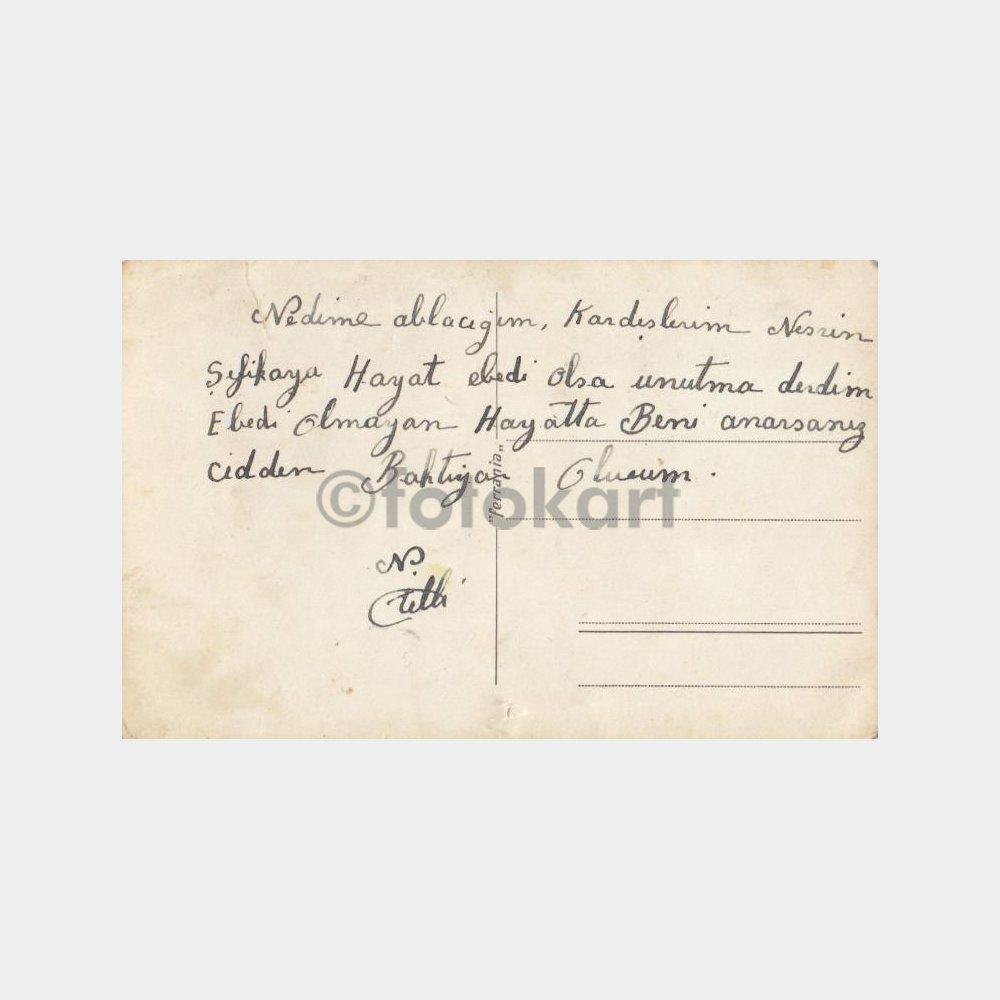 Nedime ablacığım, Kardeşlerim Nesrin
Şefikaya Hayat ebedi olsa unutma derdim
Ebedi Olmayan Hayatta Beni anarsanız
cidden Bahtiyar Olucum.
"ferrania"
©fotokart
N.